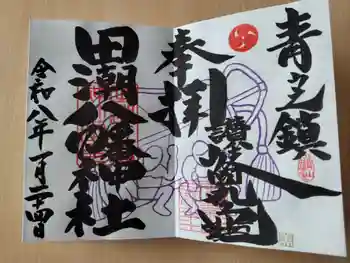 青 鎮
奉拝
讃岐丸亀
田潮八幡神社
令和八年一月二十四日